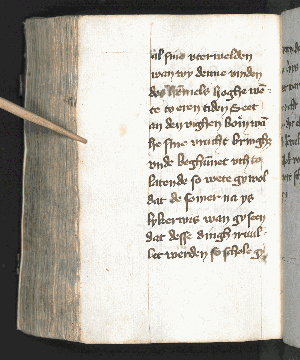 al sine vterwelden
wan wy denne vinden
des hemels hoghe we
te to eren tiden Seet
an den vighen boim wā
he sine vrucht bringhe
vnde beghīnet vth to
latende so wete gy wol
dat de somer na ys
sykerwis wan gy seen
dat desse dingh wul
let werden so schole gy